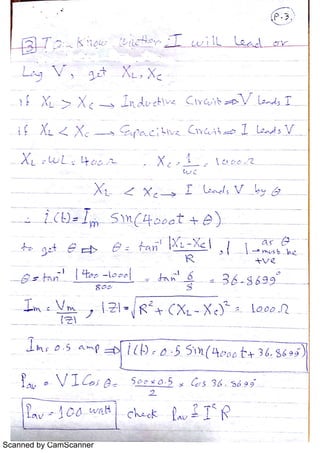 P.3.
3 To know whether I will lead or
Lag V, get XL, Xc
if XL > Xc → Inductive Circuit ⇒ V Leads I
if XL < Xc → Capacitive Circuit ⇒ I Leads V
XL = wL = 400 Ω . Xc = 1/wc = 1000 Ω
XL < Xc → I Leads V by θ
∴ i(t) = Im Sin(4000t + θ)
to get θ ⇒ θ = tan⁻¹ |XL - Xc| / R , | | → must be +ve as θ
θ = tan⁻¹ |400 - 1000| / 800 = tan⁻¹ 6/8 = 36.8699°
Im = Vm / |Z| , |Z| = √R² + (XL - Xc)² = 1000 Ω
Im = 0.5 amp ⇒ i(t) = 0.5 Sin(4000t + 36.8699°)
Pav = V I Cos θ = 500 x 0.5 / 2 x Cos 36.8699°
Pav = 100 watt check Pav ?= I² R
Scanned by CamScanner